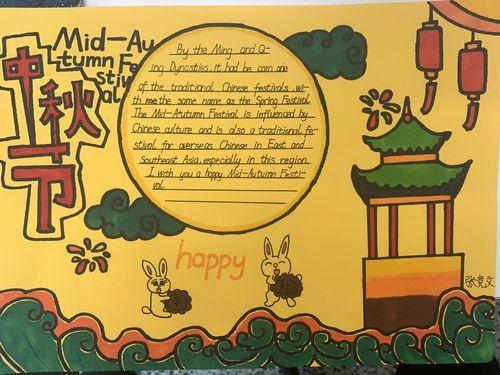 中秋节
Mid-Au
tumn Fe
stiv
al
By the Ming and Q-
ing Dynasties, it had be com one
of the traditional Chinese festivals, wi-
th me the same name as the Spring Festival
The Mid-Atutumn Festival is influenced by
Chinese culture and is also a traditional fe-
stival for overseas Chinese in East and
Southeast Asia, especially in this region.
I with you a happy Mid-Autumn Festi-
val
happy